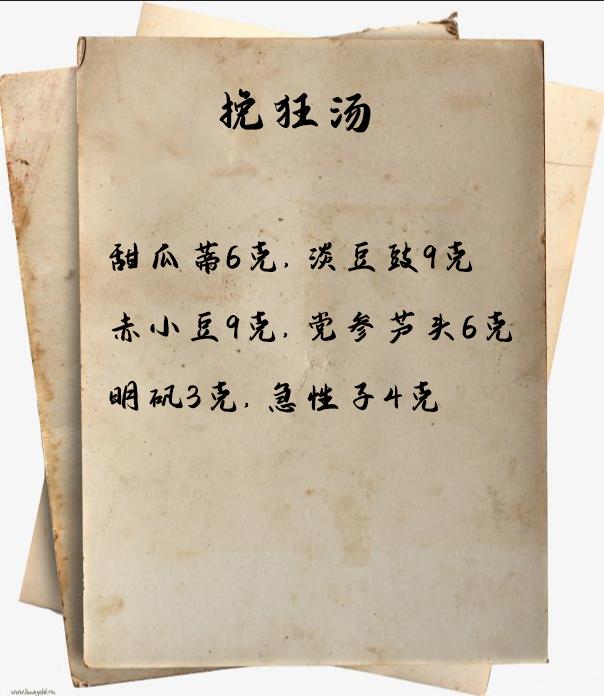 挽狂汤
甜瓜蒂6克，淡豆豉9克
赤小豆9克，党参芦头6克
明矾3克，急性子4克